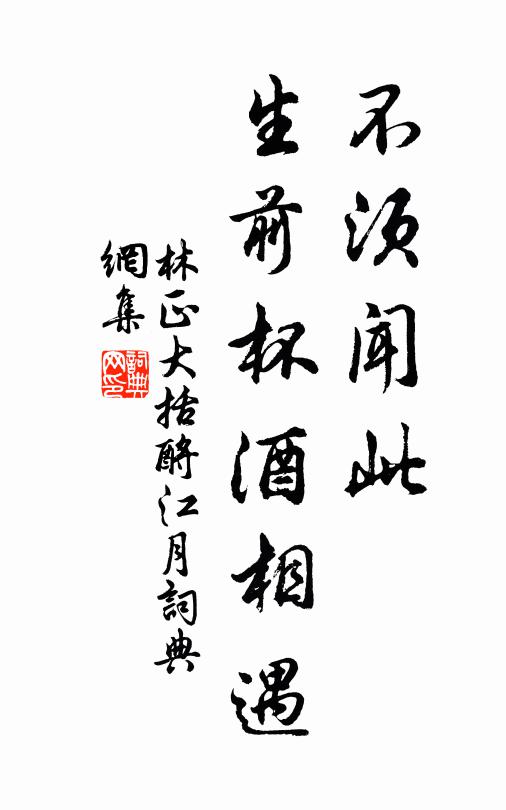 不须闻此
生前杯酒相遇
林正大括酹江月詞典
網集
詞典网印